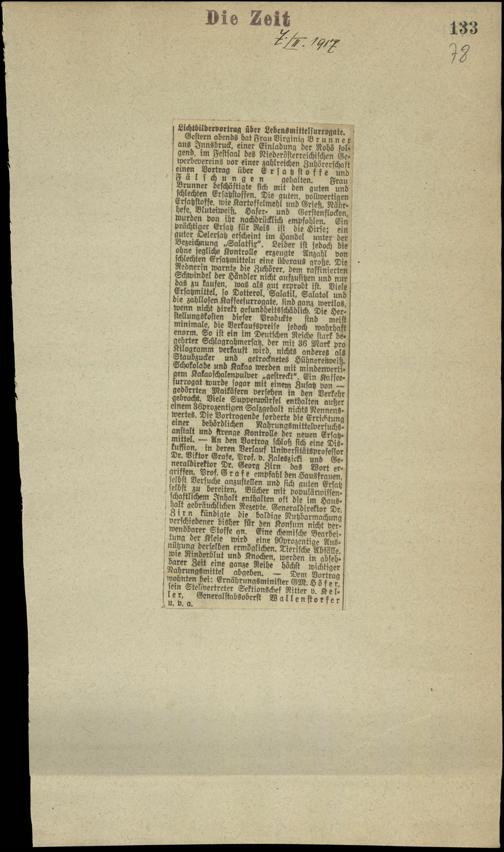 Die Zeit
7./II. 1917
133
78
Lichtbildervortrag über Lebensmittelsurrogate.
Gestern abends hat Frau Virginia Brunner
aus Innsbruck, einer Einladung der Rohö fol-
gend, im Festsaal des Niederösterreichischen Ge-
werbevereins vor einer zahlreichen Zuhörerschaft
einen Vortrag über Ersatzstoffe und
Fälschungen gehalten. Frau
Brunner beschäftigte sich mit den guten und
schlechten Ersatzstoffen. Die guten, vollwertigen
Ersatzstoffe, wie Kartoffelmehl und Grieß, Nähr-
hefe, Bluteiweiß, Hafer- und Gerstenflocken,
wurden von ihr nachdrücklich empfohlen. Ein
prächtiger Ersatz für Reis ist die Hirse; ein
guter Oelersatz erscheint im Handel unter der
Bezeichnung „Salatfix". Leider ist jedoch die
ohne jegliche Kontrolle erzeugte Anzahl von
schlechten Ersatzmitteln eine überaus große. Die
Rednerin warnte die Zuhörer, dem raffinierten
Schwindel der Händler nicht aufzusitzen und nur
das zu kaufen, was als gut erprobt ist. Viele
Ersatzmittel, so Dotterol, Salatil, Salatol und
die zahllosen Kaffeesurrogate, sind ganz wertlos,
wenn nicht direkt gesundheitsschädlich. Die Her-
stellungskosten dieser Produkte sind meist
minimale, die Verkaufspreise jedoch wahrhaft
enorm. So ist ein im Deutschen Reiche stark be-
gehrter Schlagrahmersatz, der mit 36 Mark pro
Kilogramm verkauft wird, nichts anderes als
Staubzucker und getrocknetes Hühnereiweiß.
Schokolade und Kakao werden mit minderwerti-
gem Kakaoschalenpulver „gestreckt". Ein Kaffee-
surrogat wurde sogar mit einem Zusatz von —
gedörrten Maikäfern versehen in den Verkehr
gebracht. Viele Suppenwürfel enthalten außer
einem 86prozentigen Salzgehalt nichts Nennens-
wertes. Die Vortragende forderte die Errichtung
einer behördlichen Nahrungsmittelversuchs-
anstalt und strenge Kontrolle der neuen Ersatz-
mittel. — An den Vortrag schloß sich eine Dis-
kussion, in deren Verlauf Universitätsprofessor
Dr. Viktor Grafe, Prof. v. Zaleszicki und Ge-
neraldirektor Dr. Georg Zirn das Wort er-
griffen. Prof. Grafe empfahl den Hausfrauen,
selbst Versuche anzustellen und sich guten Ersatz
selbst zu bereiten. Bücher mit populärwissen-
schaftlichem Inhalt enthalten oft die im Haus-
halt gebräuchlichen Rezepte. Generaldirektor Dr.
Zirn kündigte die baldige Nutzbarmachung
verschiedener bisher für den Konsum nicht ver-
wendbarer Stoffe an. Eine chemische Bearbei-
tung der Kleie wird eine 90prozentige Aus-
nützung derselben ermöglichen. Tierische Abfälle,
wie Rinderblut und Knochen, werden in abseh-
barer Zeit eine ganze Reihe höchst wichtiger
Nahrungsmittel abgeben. — Dem Vortrag
wohnten bei: Ernährungsminister GM. Höfer,
sein Stellvertreter Sektionschef Ritter v. Kel-
ler, Generalstabsoberst Wallenstorfer
u. v. a.